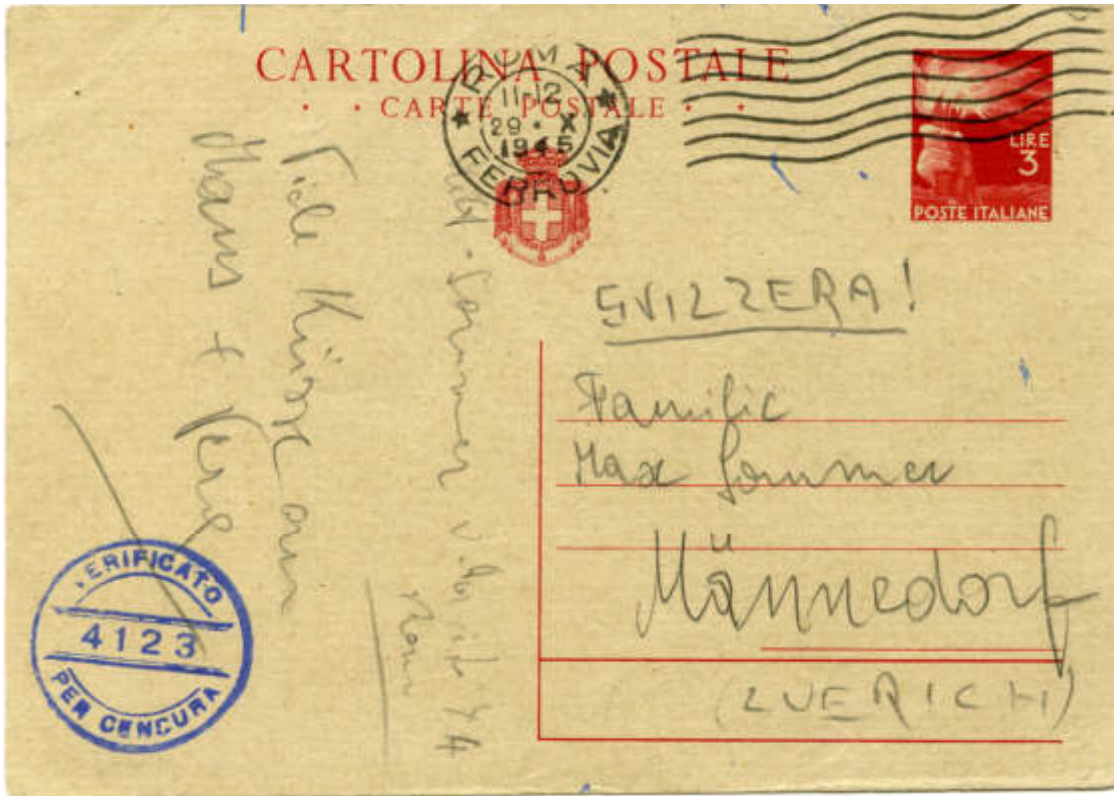 CARTOLINA POSTALE
CARTE POSTALE
ROMA
11-12
29 · X
1945
FERROVIA
LIRE
3
POSTE ITALIANE
SVIZZERA!
Familie
Max Sommer
Männedorf
(ZUERICH)
Sommer
Viele Küsse
Hans +
VERIFICATO
4123
PER CENCURA